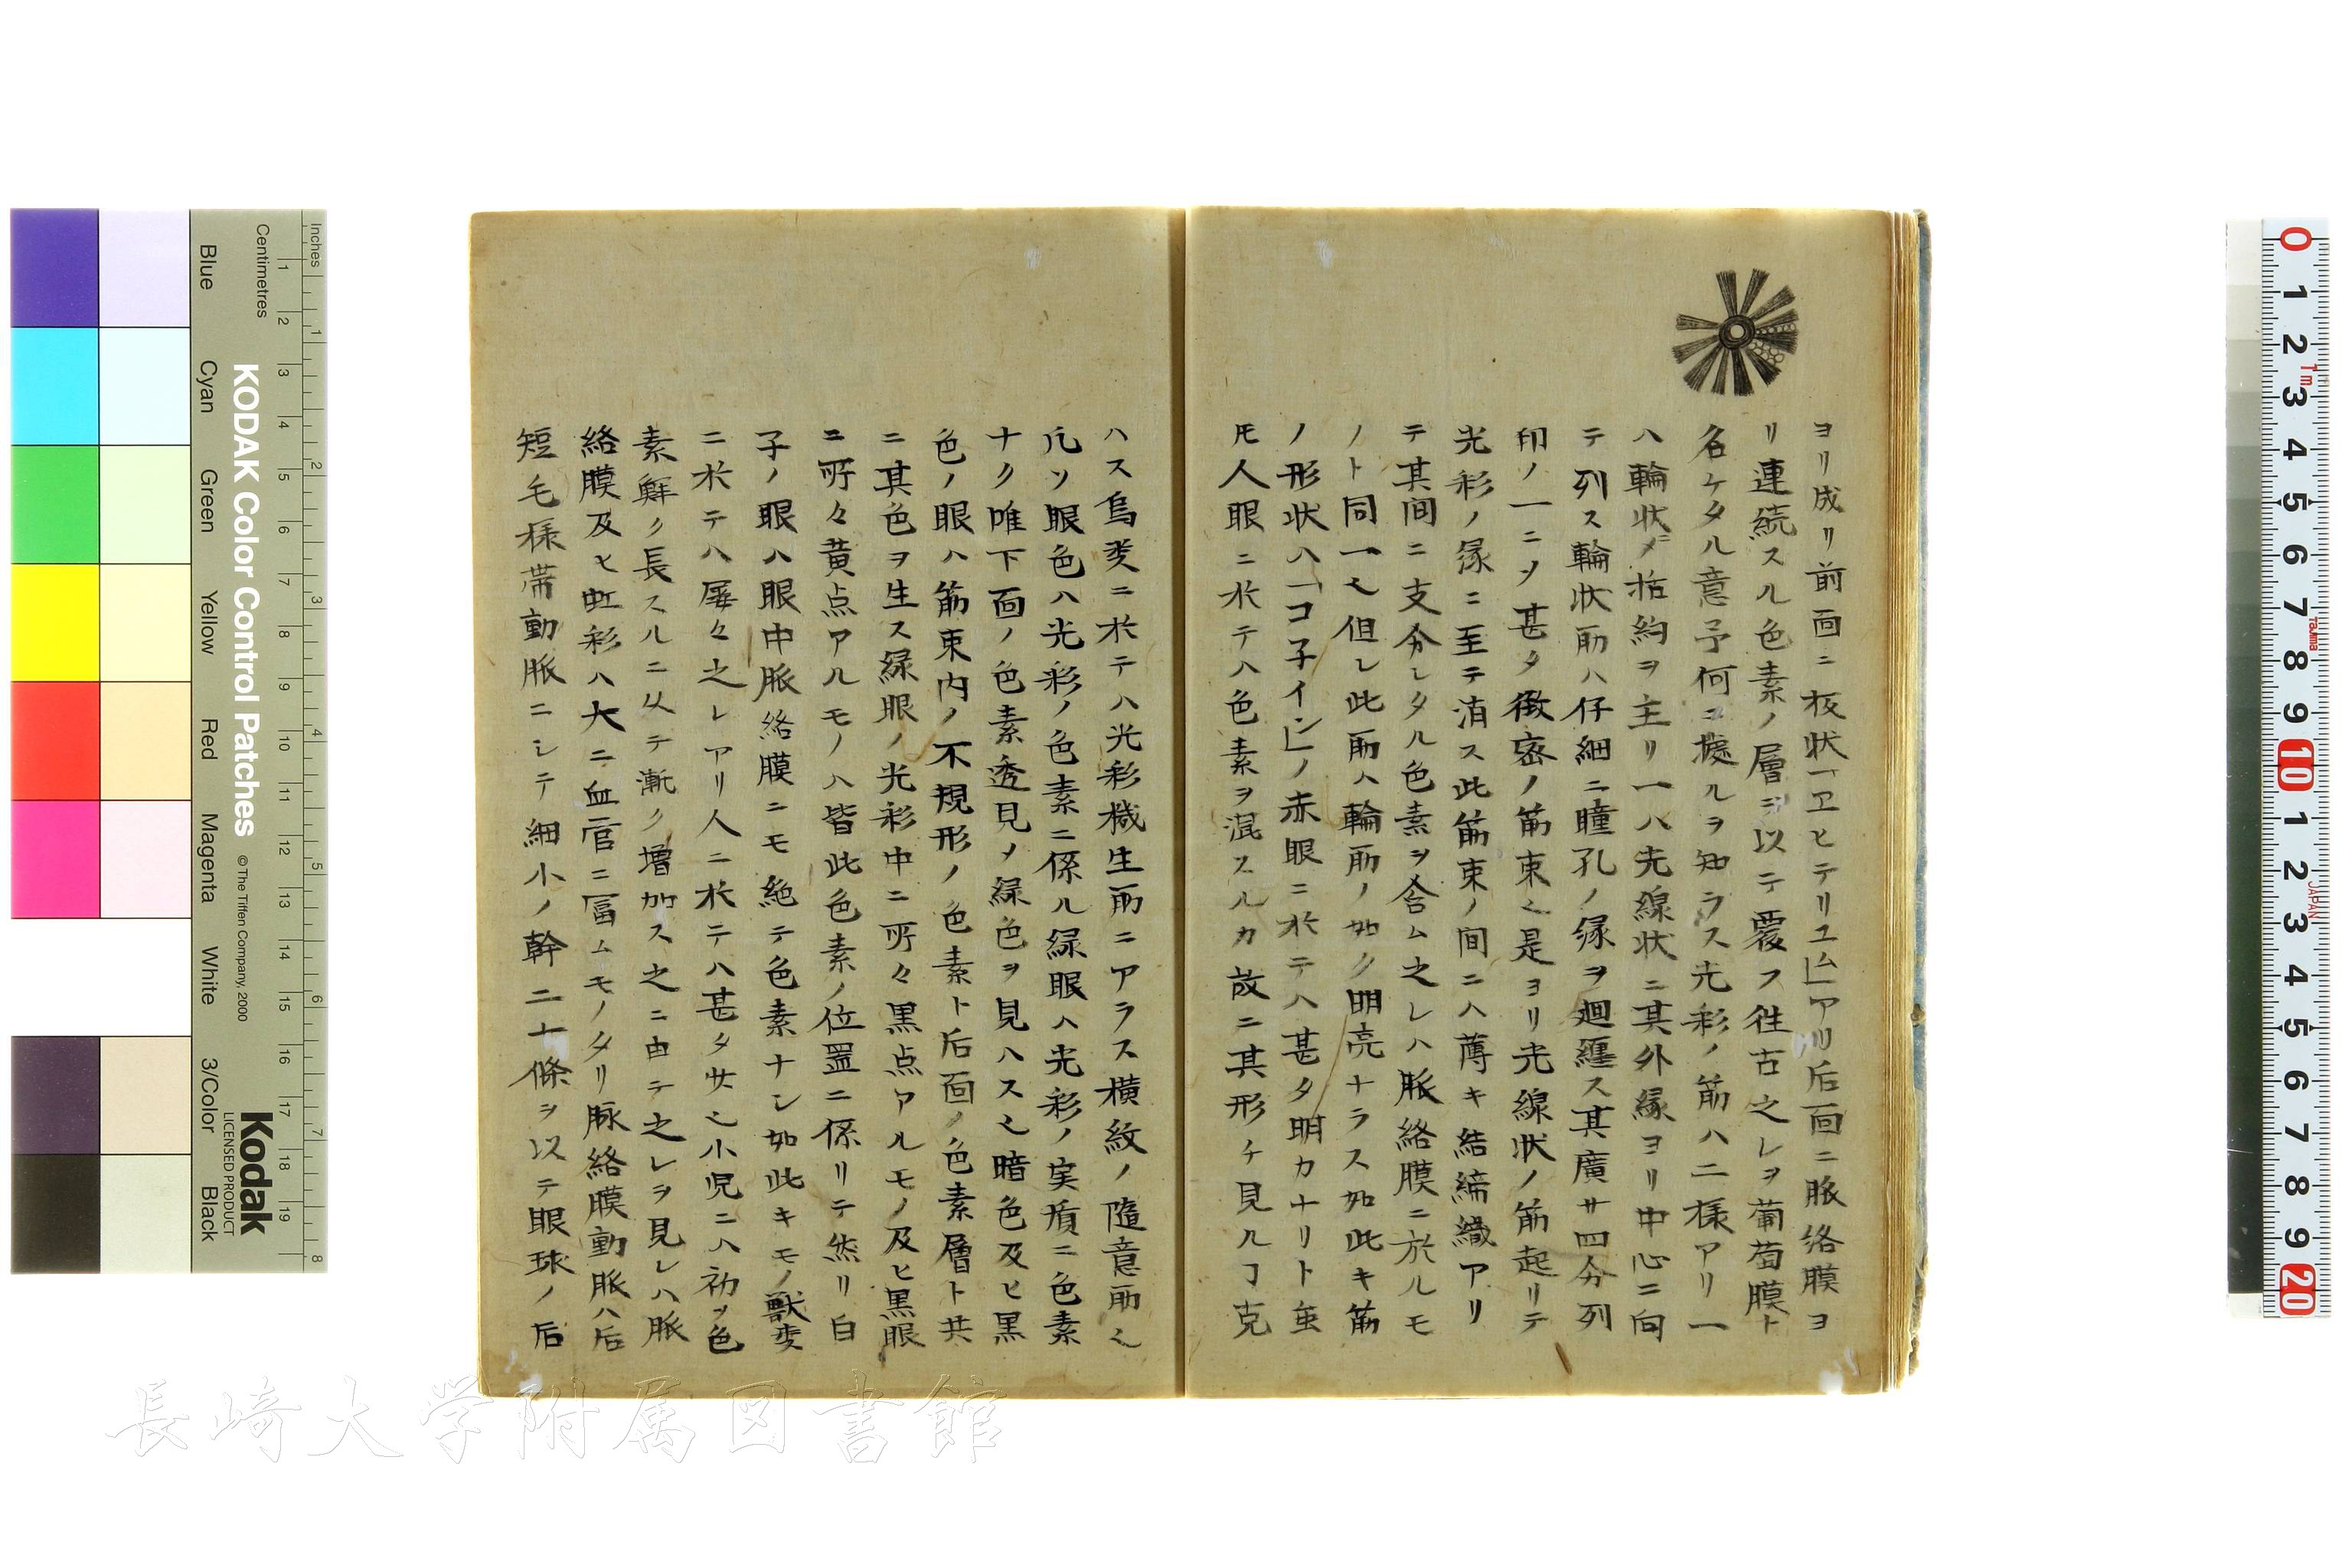 ヨリ成リ前面ニ板状「エヒテリユム」アリ后面ニ脈絡膜ヨ
リ連続スル色素ノ層ヲ以テ覆フ徃古之レヲ葡萄膜ト
名ケタル意予何ニ據ルヲ知ラス光彩ノ筋ハ二様アリ一
ハ輪状ノ括約ヲ主リ一ハ光線状ニ其外縁ヨリ中心ニ向
テ列ス輪状筋ハ仔細ニ瞳孔ノ縁ヲ廻纏ス其廣サ四分列
印ノ一ニ〆甚タ緻密ノ筋束也是ヨリ光線状ノ筋起リテ
光彩ノ縁ニ至テ消ス此筋束ノ間ニハ薄キ結締織アリ
テ其间ニ支分レタル色素ヲ含ム之レハ脈絡膜ニ於ルモ
ノト同一也但レ此筋ハ輪筋ノ如ク明亮ナラス如此キ筋
ノ形状ハ「コ子イン」ノ赤眼ニ於テハ甚タ明カナリト虽
𪜈人眼ニ於テハ色素ヲ混スルカ故ニ其形チ見ルヿ克
ハス鳥类ニ於テハ光彩機生筋ニアラス横紋ノ隨意筋也
凡ソ眼色ハ光彩ノ色素ニ係ル緑眼ハ光彩ノ実質ニ色素
ナク唯下面ノ色素透見〆緑色ヲ見ハス也暗色及ヒ黒
色ノ眼ハ筋束内ノ不規形ノ色素ト后面ノ色素層ト共
ニ其色ヲ生ス緑眼ノ光彩中ニ所々黒点アルモノ及ヒ黒眼
ニ所々黄点アルモノハ皆此色素ノ位置ニ係リテ然リ白
子ノ眼ハ眼中脈絡膜ニモ絶テ色素ナシ如此キモノ獣类
ニ於テハ屡々之レアリ人ニ於テハ甚タ少也小児ニハ初メ色
素鮮ク長スルニ从テ漸ク増加ス之ニ由テ之レヲ見レハ脈
絡膜及ヒ虹彩ハ大ニ血管ニ冨ムモノタリ脈絡膜動脈ハ后
短毛様帯動脈ニシテ細小ノ幹二十條ヲ以テ眼球ノ后
Inches
Centimetres
KODAK Color Control Patches
© The Tiffen Company, 2000
Kodak
LICENSED PRODUCT
Blue
Cyan
Green
Yellow
Red
Magenta
White
3/Color
Black
Tajima
JAPAN
長崎大学附属図書館